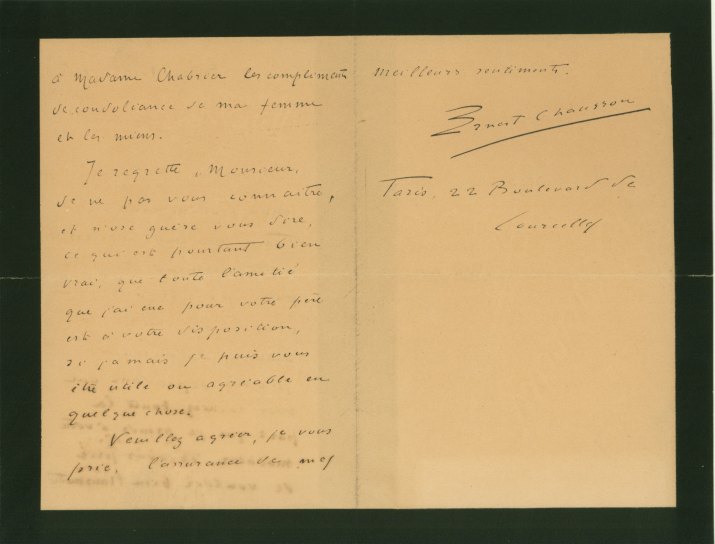 à Madame Chabrier les compliments
de condoléance de ma femme
et les miens.
Je regrette, Monsieur,
de ne pas vous connaitre,
et n'ose guère vous dire,
ce qui est pourtant bien
vrai, que toute l'amitié
que j'ai eue pour votre père
est à votre disposition,
si jamais je puis vous
être utile ou agréable en
quelque chose.
Veuillez agréer, je vous
prie, l'assurance de mes
meilleurs sentiments.
Ernest Chausson
Paris, 22 Boulevard de
Courcelles